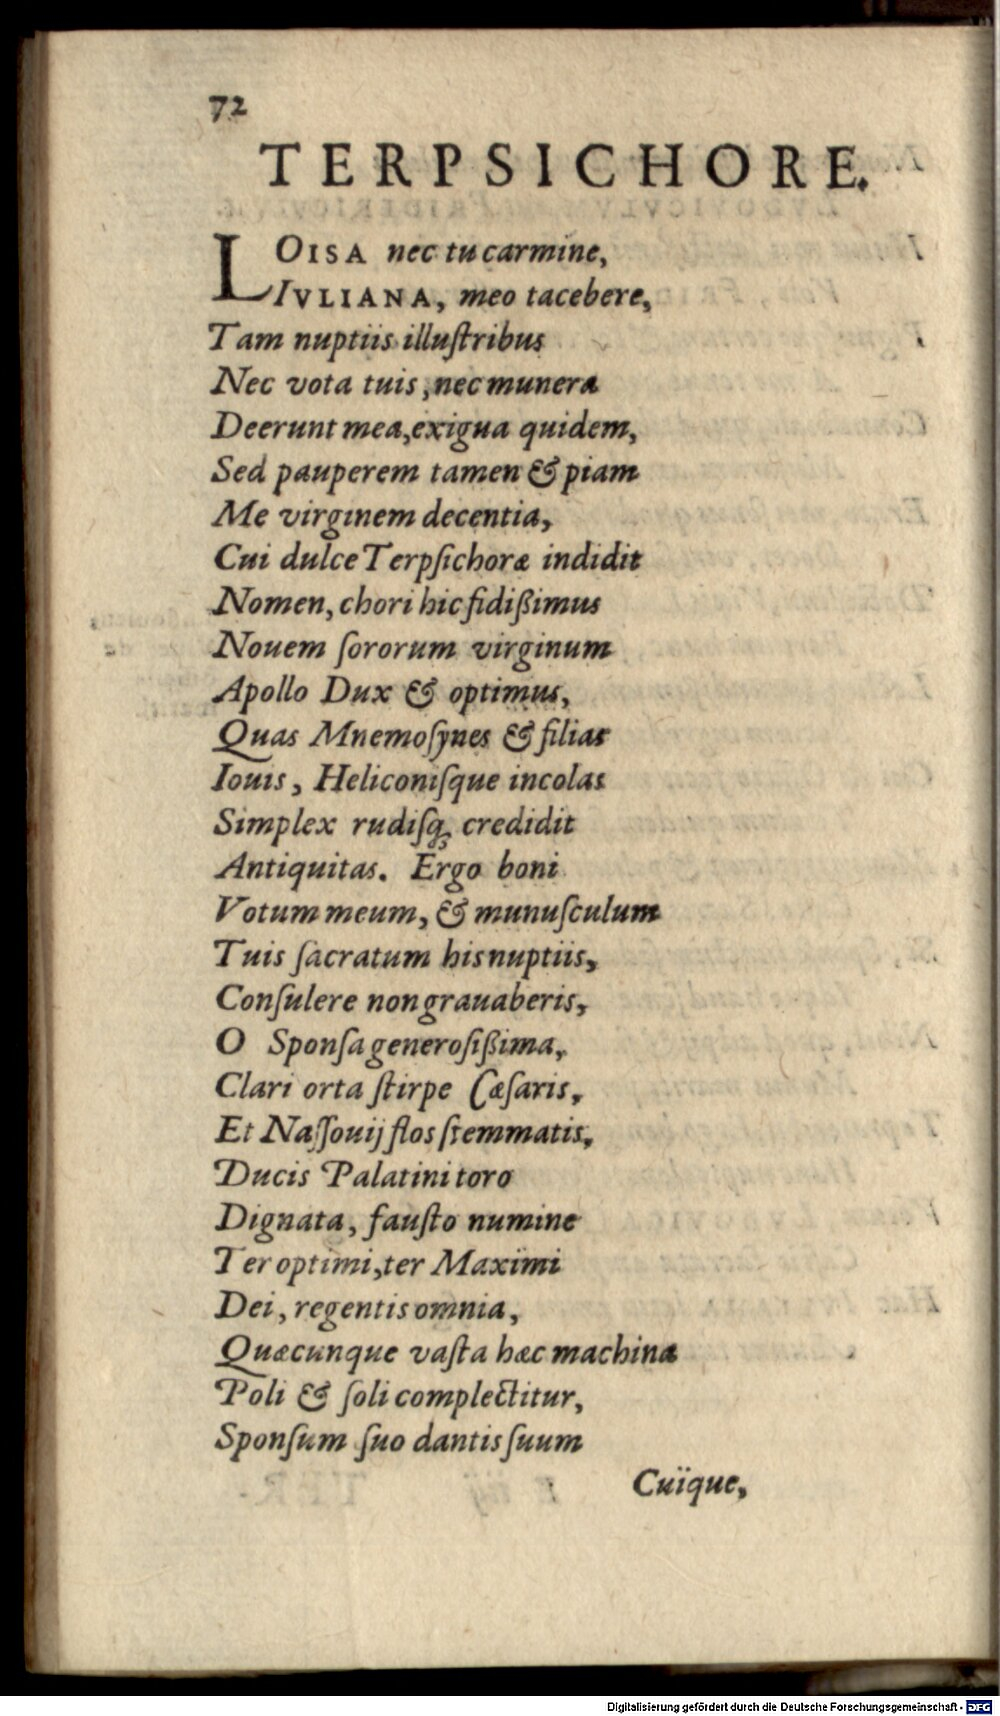 72
TERPSICHORE.
LOISA nec tu carmine,
IVLIANA, meo tacebere,
Tam nuptiis illuſtribus
Nec vota tuis, nec munera
Deerunt mea, exigua quidem,
Sed pauperem tamen & piam
Me virginem decentia,
Cui dulce Terpſichoræ indidit
Nomen, chori hic fidißimus
Nouem ſororum virginum
Apollo Dux & optimus,
Quas Mnemoſynes & filias
Iouis, Heliconiſque incolas
Simplex rudiſq; credidit
Antiquitas. Ergo boni
Votum meum, & munuſculum
Tuis ſacratum his nuptiis,
Conſulere non grauaberis,
O Sponſa generoſißima,
Clari orta ſtirpe Cæſaris,
Et Naſſouij flos ſtemmatis,
Ducis Palatini toro
Dignata, fauſto numine
Ter optimi, ter Maximi
Dei, regentis omnia,
Quæcunque vaſta hæc machina
Poli & ſoli complectitur,
Sponſum ſuo dantis ſuum
Cuïque,
Digitalisierung gefördert durch die Deutsche Forschungsgemeinschaft - DFG